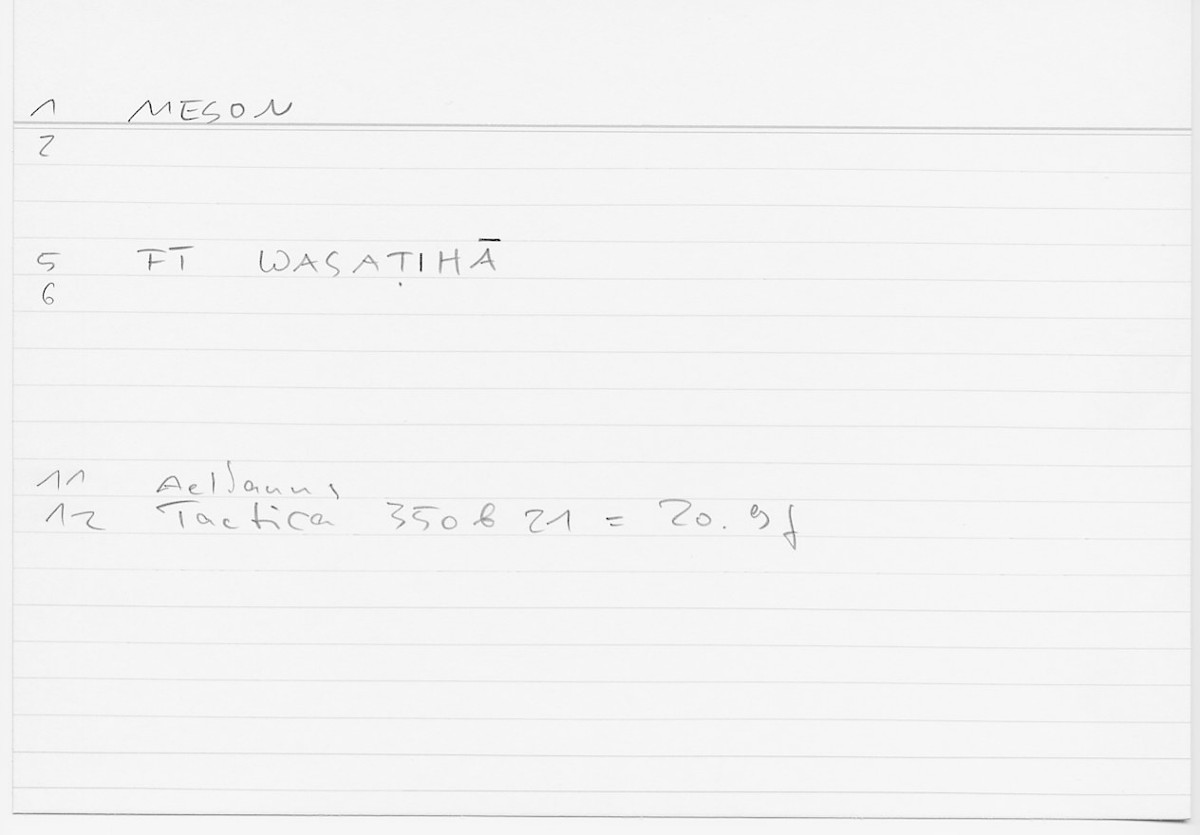 1 MESON
2
5 FĪ WASAṬIHĀ
6
11 Aelianus
12 Tactica 350b 21 = 20.9f